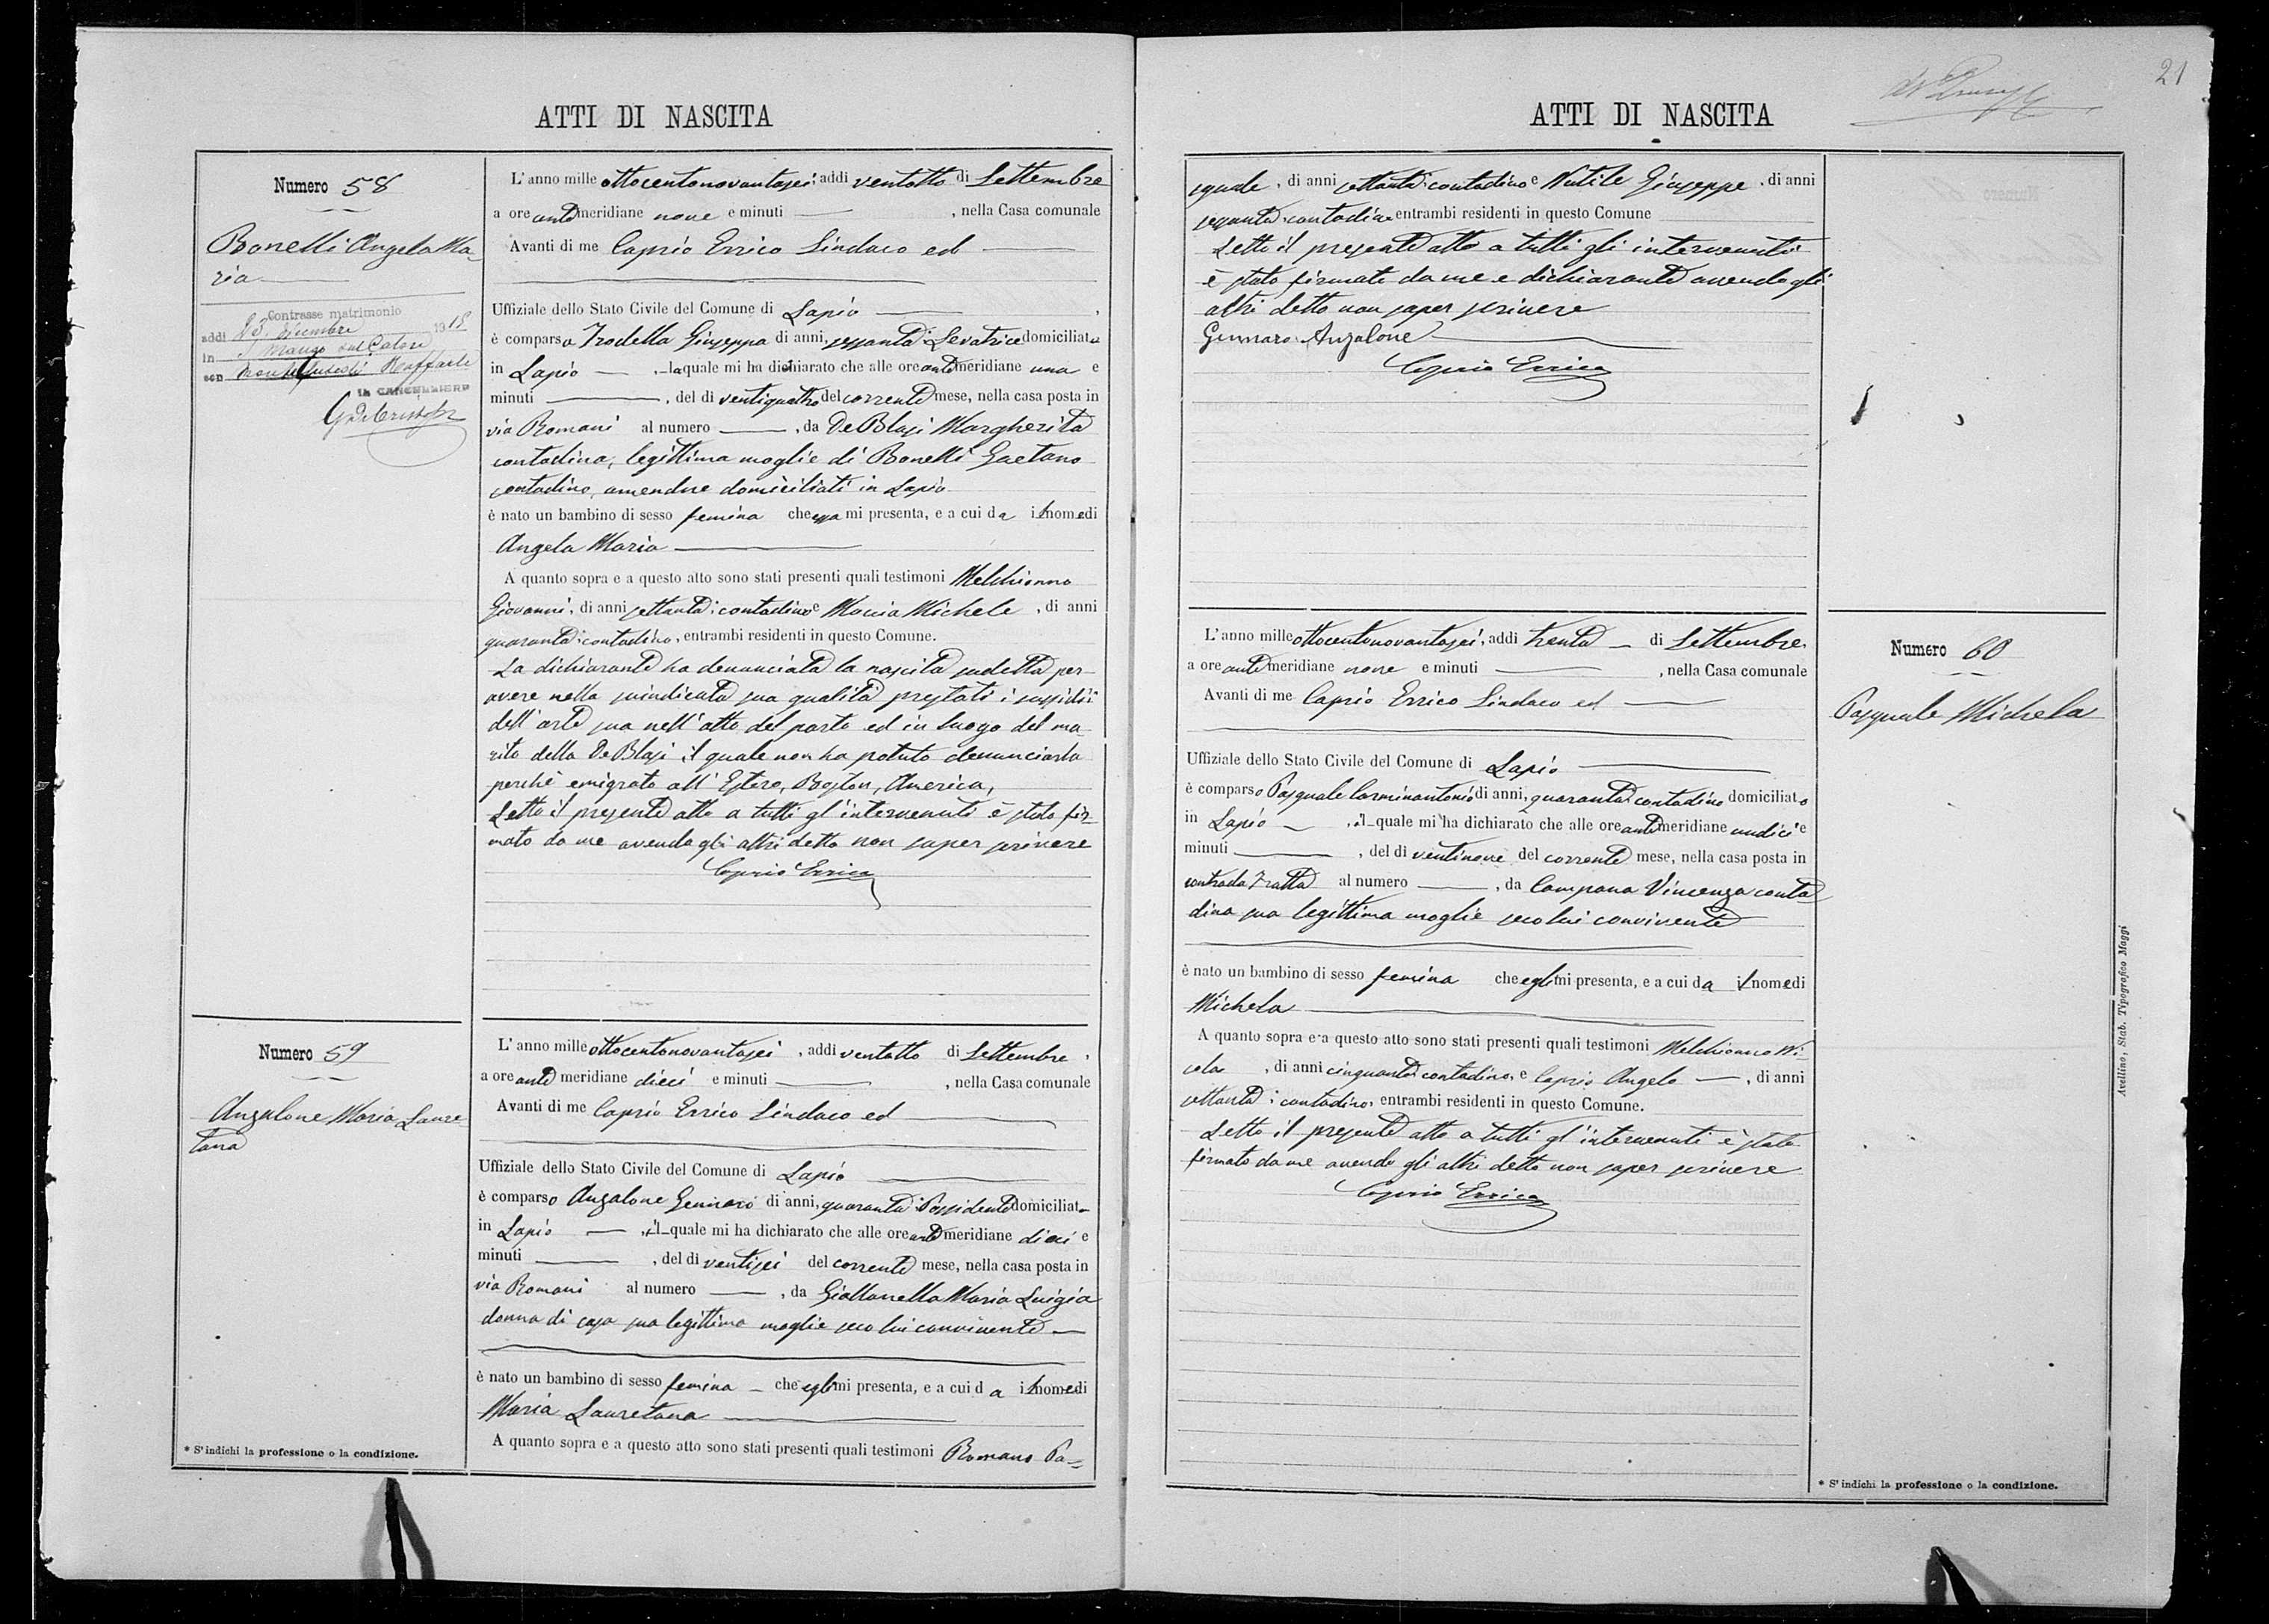 ATTI DI NASCITA
Numero 58
Bonelli Angela Ma-
ria
Contrasse matrimonio
addì 23 Dicembre 1918
in S. Mango sul Calore
con Raffaele
IL CANCELLIERE
L'anno mille ottocentonovantasei, addì ventotto di Settembre
a ore antemeridiane nove e minuti — , nella Casa comunale
Avanti di me Caprio Errico Sindaco ed
Uffiziale dello Stato Civile del Comune di Lapio ,
è comparsa Trodella Giuseppa di anni, sessanta: Levatrice domiciliata
in Lapio — , la quale mi ha dichiarato che alle ore antemeridiane una e
minuti — , del dì ventiquattro del corrente mese, nella casa posta in
via Romani al numero — , da De Blasi Margherita
contadina, legittima moglie di Bonelli Gaetano
contadino, amendue domiciliati in Lapio
è nato un bambino di sesso femina che essa mi presenta, e a cui da il nome di
Angela Maria
A quanto sopra e a questo atto sono stati presenti quali testimoni Melchionno
Giovanni, di anni settanta: contadino e Maccia Michele , di anni
quaranta: contadino, entrambi residenti in questo Comune.
La dichiarante ha denunciata la nascita sudetta per
avere nella suindicata sua qualità prestati i sussidii
dell'arte sua nell'atto del parto ed in luogo del ma-
rito della De Blasi il quale non ha potuto denunciarla
perchè emigrato all'Estero, Boston, America,
Letto il presente atto a tutti gl'intervenuti è stato fir-
mato da me avendo gli altri detto non saper scrivere
Caprio Errico
Numero 59
Anzalone Maria Laure
tana
L'anno mille ottocentonovantasei , addì ventotto di Settembre ,
a ore antemeridiane dieci e minuti — , nella Casa comunale
Avanti di me Caprio Errico Sindaco ed
Uffiziale dello Stato Civile del Comune di Lapio
è comparso Anzalone Gennaro di anni, quaranta: Possidente domiciliato
in Lapio — , il quale mi ha dichiarato che alle ore antemeridiane dieci e
minuti — , del dì ventisei del corrente mese, nella casa posta in
via Romani al numero — , da Giallonella Maria Luigia
donna di casa sua legittima moglie seco lui convivente
è nato un bambino di sesso femina — che egli mi presenta, e a cui da il nome di
Maria Lauretana
A quanto sopra e a questo atto sono stati presenti quali testimoni Romano Pa-
* S'indichi la professione o la condizione.
21
ATTI DI NASCITA
squale, di anni settanta: contadino e Nutile Giuseppe, di anni
sessanta: contadino entrambi residenti in questo Comune
Letto il presente atto a tutti gli intervenuti
è stato firmato da me e dichiarante avendo gli
altri detto non saper scrivere
Gennaro Anzalone
Caprio Errico
L'anno mille ottocentonovantasei, addì trenta — di Settembre
a ore antemeridiane nove e minuti — , nella Casa comunale
Avanti di me Caprio Errico Sindaco ed
Uffiziale dello Stato Civile del Comune di Lapio
è comparso Pasquale Carminantonio di anni, quaranta: contadino domiciliato
in Lapio — , il quale mi ha dichiarato che alle ore antemeridiane undici e
minuti — , del dì ventinove del corrente mese, nella casa posta in
contrada Tratta al numero — , da Campana Vincenza conta
dina sua legittima moglie seco lui convivente
è nato un bambino di sesso femina che egli mi presenta, e a cui da il nome di
Michela
A quanto sopra e a questo atto sono stati presenti quali testimoni Melchionno Ni-
cola , di anni cinquanta: contadino, e Caprio Angelo — , di anni
settanta: contadino, entrambi residenti in questo Comune.
Letto il presente atto a tutti gl'intervenuti è stato
firmato da me avendo gli altri detto non saper scrivere
Caprio Errico
Numero 60
Pasquale Michela
Avellino, Stab. Tipografico Maggi
* S'indichi la professione o la condizione.